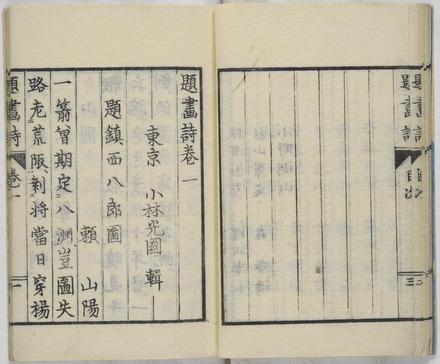 題畫詩 目次
題畫詩卷一
東京 小林光國 輯
題鎮西八郎圖
賴 山陽
一箭曾期定八洲豈圖失
路老荒陬剩將當日穿楊
題畫詩 卷一 一